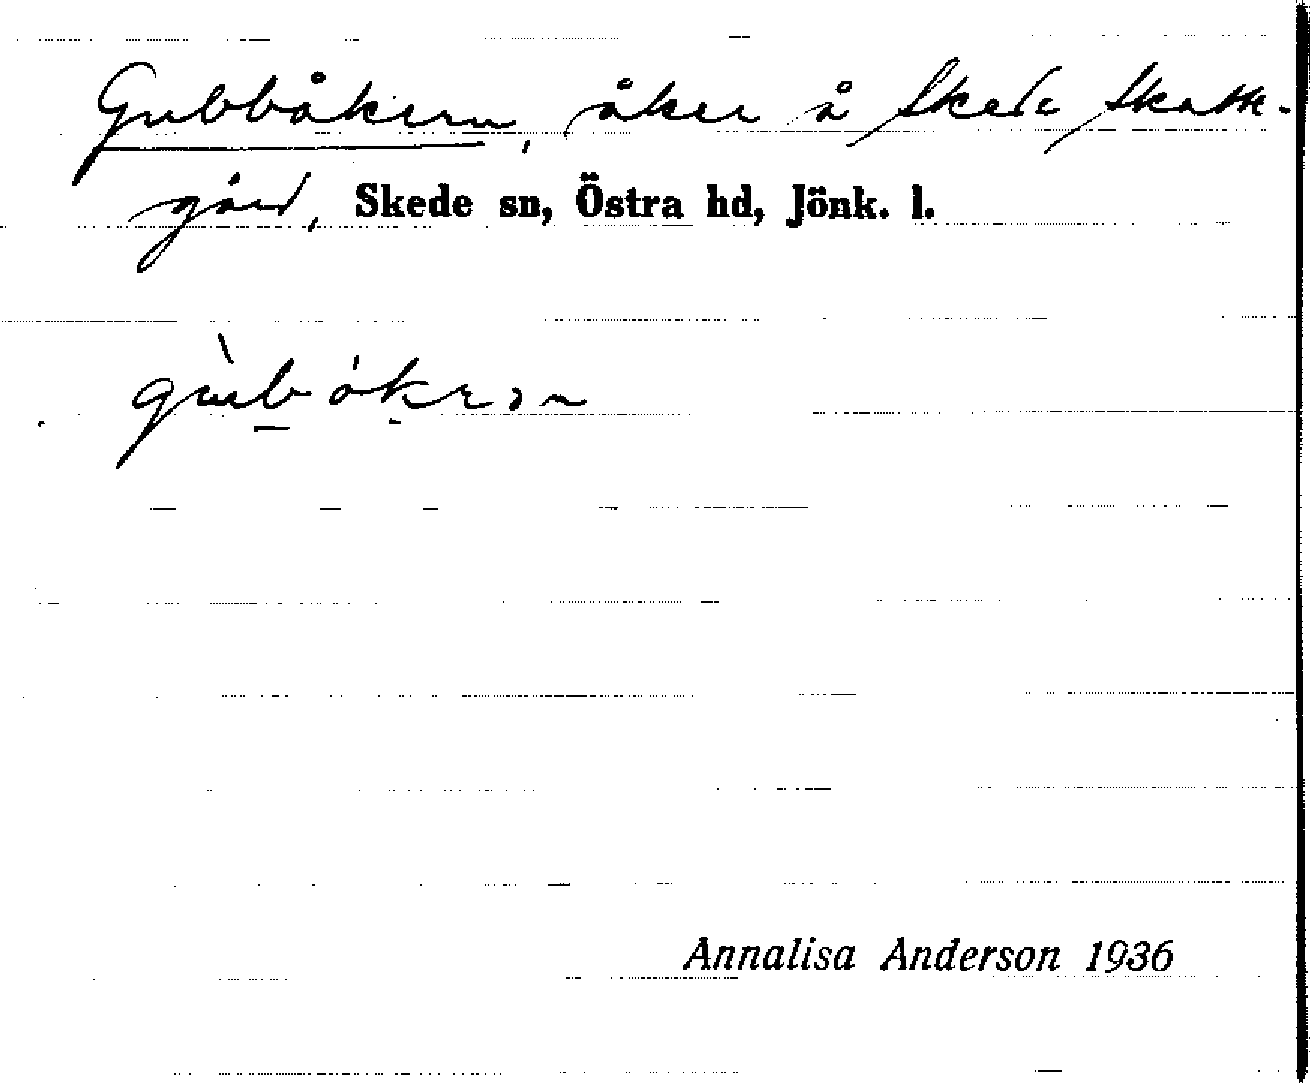 Gubbåkern, åker å Skede Skatte-
gård, Skede sn, Östra hd, Jönk. l.
Annalisa Anderson 1936